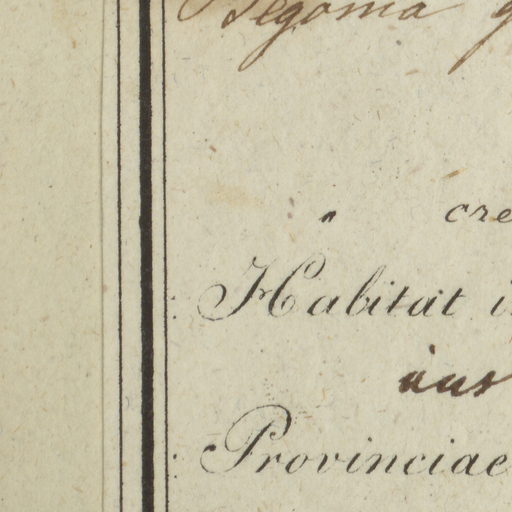 Begonia
cre
Habitat i
Provinciae